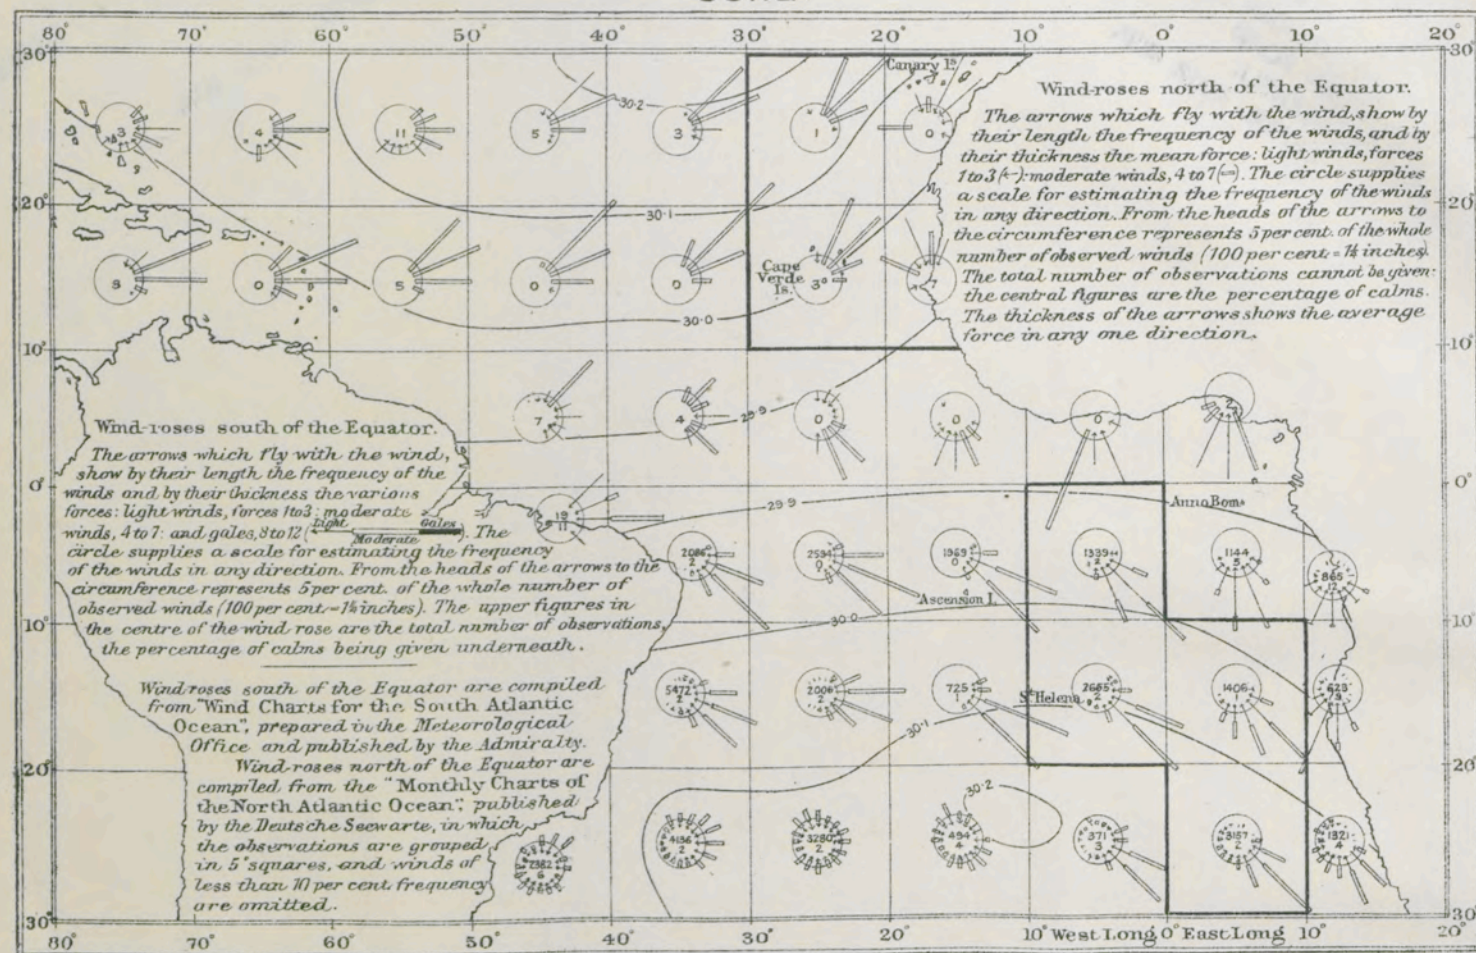 80° 70° 60° 50° 40° 30° 20° 10° 0° 10° 20°
30°
30·2
Canary Is.
Wind-roses north of the Equator.
The arrows which fly with the wind, show by
their length the frequency of the winds, and by
their thickness the mean force: light winds, forces
1 to 3 (←): moderate winds, 4 to 7 (⇐). The circle supplies
a scale for estimating the frequency of the winds
in any direction. From the heads of the arrows to
the circumference represents 5 per cent. of the whole
number of observed winds (100 per cent. = 1½ inches).
The total number of observations cannot be given:
the central figures are the percentage of calms.
The thickness of the arrows shows the average
force in any one direction.
3 4 11 5 3 1 0
20° 20°
30·1
Cape
Verde
Is.
0 5 0 0 3 7
30·0
10° 10°
29·9
7 4 0 0 0
Wind-roses south of the Equator.
The arrows which fly with the wind,
show by their length the frequency of the
winds and by their thickness the various
forces: light winds, forces 1 to 3: moderate
winds, 4 to 7: and gales, 8 to 12 (Light Moderate Gales). The
circle supplies a scale for estimating the frequency
of the winds in any direction. From the heads of the arrows to the
circumference represents 5 per cent. of the whole number of
observed winds (100 per cent. = 1½ inches). The upper figures in
the centre of the wind rose are the total number of observations,
the percentage of calms being given underneath.
0° 0°
29·9
Anno Bom
19
11
2594
0
1969
0
1339
2
1144
5
865
12
Ascension I.
30·0
10° 10°
Wind-roses south of the Equator are compiled
from "Wind Charts for the South Atlantic
Ocean", prepared in the Meteorological
Office and published by the Admiralty.
Wind-roses north of the Equator are
compiled from the "Monthly Charts of
the North Atlantic Ocean", published
by the Deutsche Seewarte, in which
the observations are grouped
in 5° squares, and winds of
less than 10 per cent. frequency
are omitted.
5472
2
2006
2
725
2665
2
1406
623
9
St Helena
30·1
20° 20°
30·2
4136
2
3280
2
494
4
371
3
3157
2
1321
4
2382
6
30° 30°
80° 70° 60° 50° 40° 30° 20° 10° West Long. 0° East Long. 10° 20°